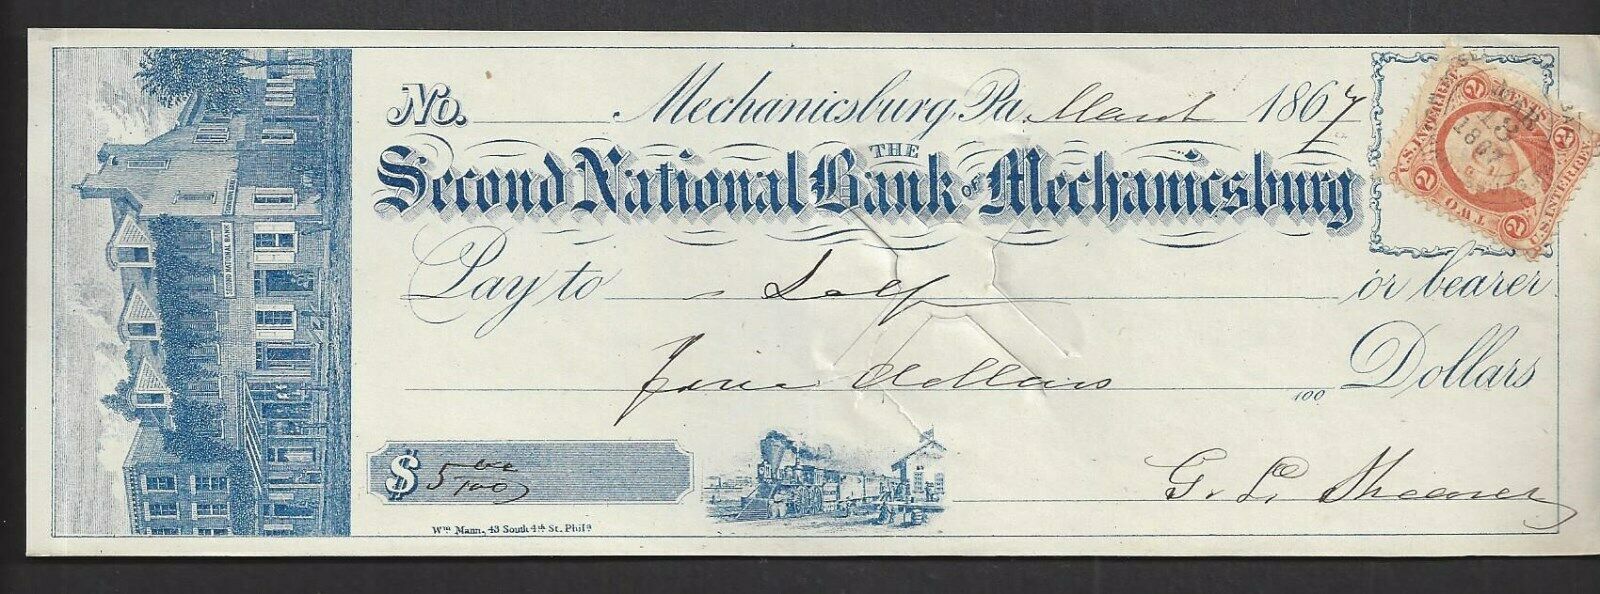 No. Mechanicsburg, Pa. March 1867
THE
Second National Bank of Mechanicsburg
Pay to Self or bearer
Five dollars 100 Dollars
$ 5 00/100
G. L. Shearer
Wm Mann, 43 South 4th St. Phila
SECOND NATIONAL BANK
U.S. INTER. REV.
2 TWO CENTS 2
MAR
13
1867